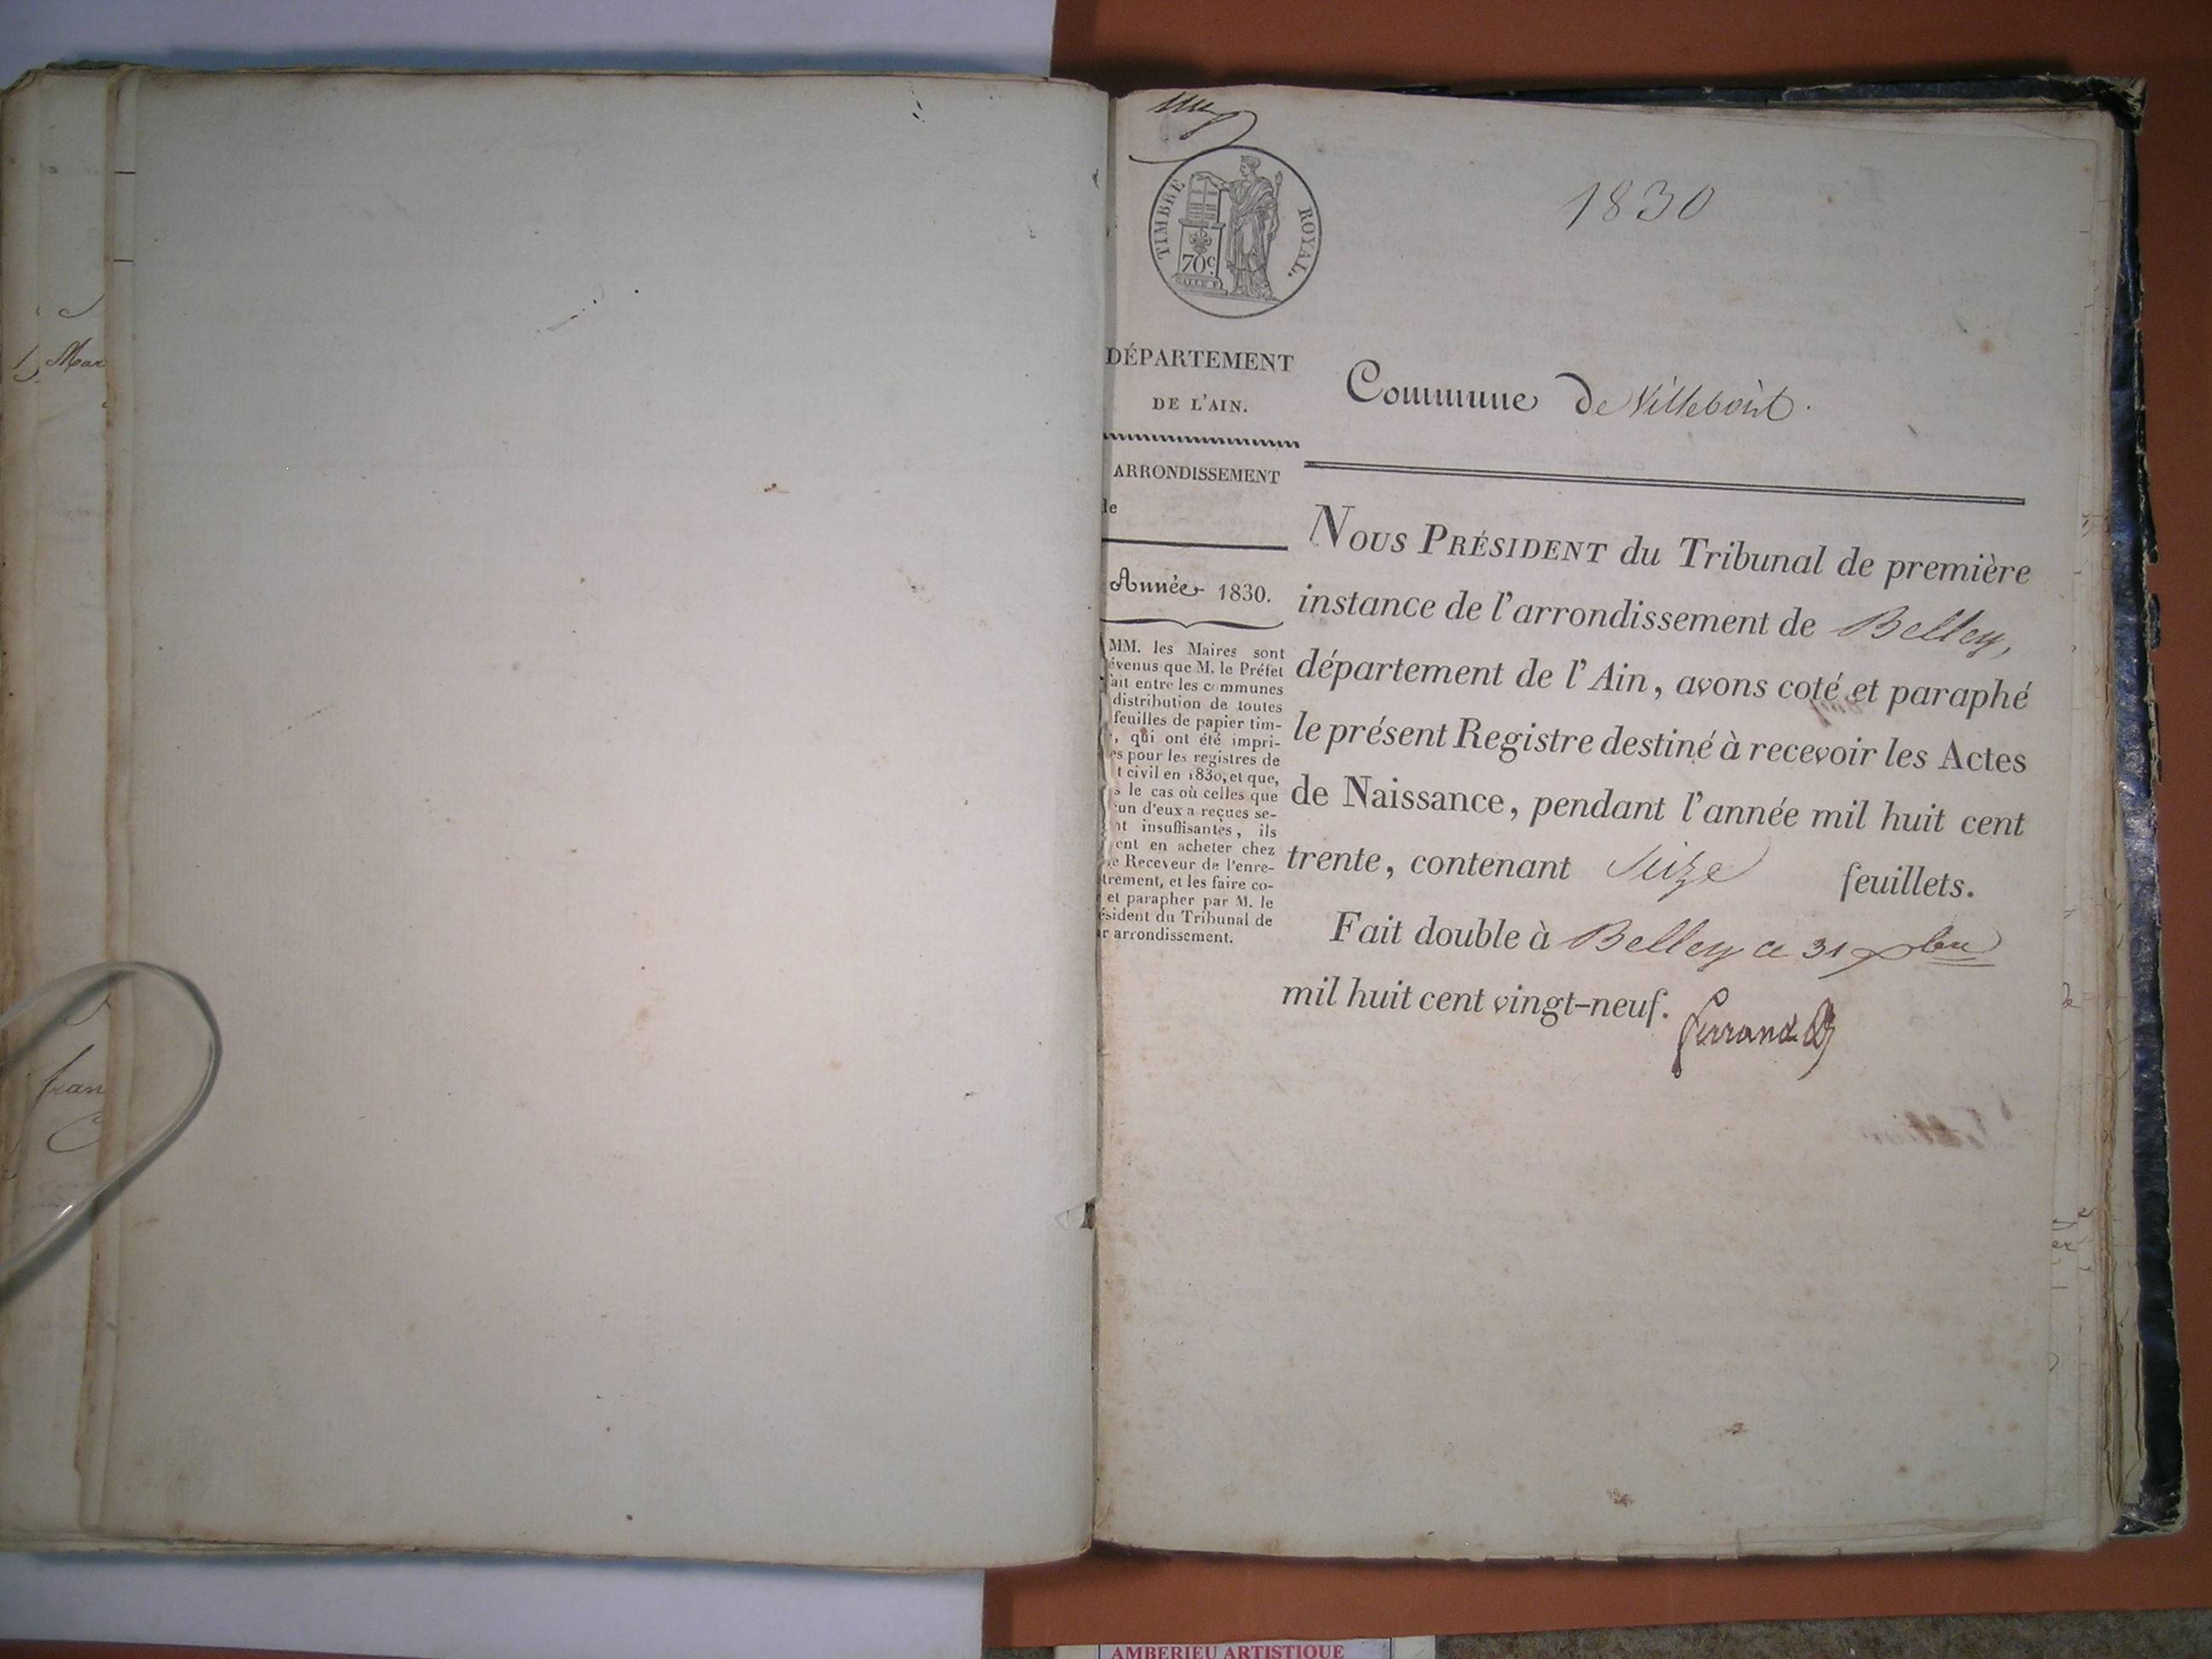 Mar
fran
TIMBRE ROYAL.
70c
1830
DÉPARTEMENT
DE L'AIN.
Commune de Villebois
ARRONDISSEMENT
de
Année 1830.
MM. les Maires sont
évenus que M. le Préfet
ait entre les communes
distribution de toutes
feuilles de papier tim-
, qui ont été impri-
es pour les registres de
t civil en 1830, et que,
s le cas où celles que
un d'eux a reçues se-
nt insuffisantes, ils
ent en acheter chez
e Receveur de l'enre-
trement, et les faire co-
et parapher par M. le
ésident du Tribunal de
r arrondissement.
NOUS PRÉSIDENT du Tribunal de première
instance de l'arrondissement de Belley,
département de l'Ain, avons coté et paraphé
le présent Registre destiné à recevoir les Actes
de Naissance, pendant l'année mil huit cent
trente, contenant Seize feuillets.
Fait double à Belley ce 31 xbre
mil huit cent vingt-neuf.
ferrand
AMBERIEU ARTISTIQUE